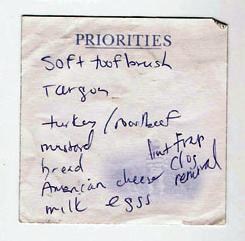 PRIORITIES
Soft toofbrush
Targon
turkey / roastbeef
mustard
bread
American cheese
milk eggs
lint Trap
clog
removal